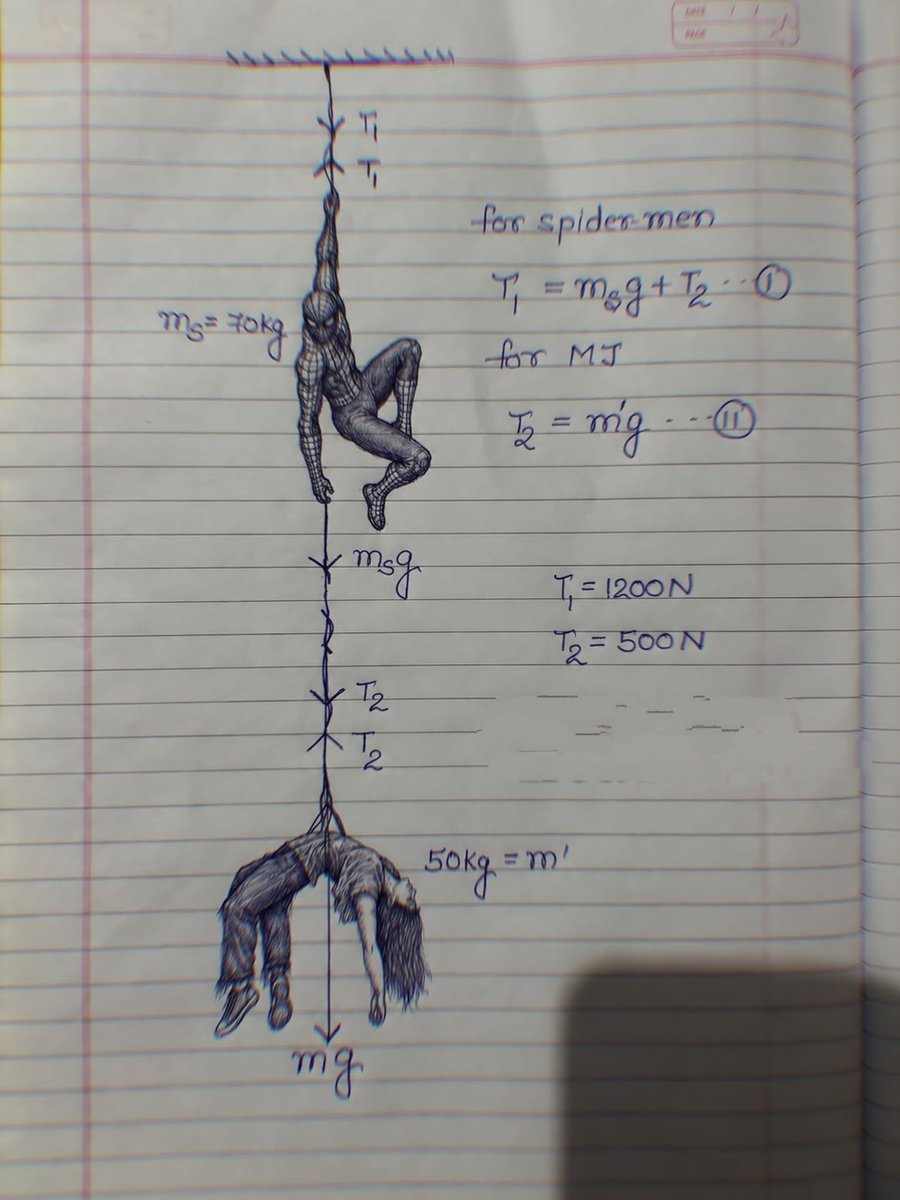 DATE / /
PAGE
T₁
T₁
for spider-men
T₁ = mₛg + T₂ --- (I)
mₛ = 70kg
for MJ
T₂ = m'g ---- (II)
mₛg
T₁ = 1200N
T₂ = 500N
T₂
T₂
50kg = m'
mg